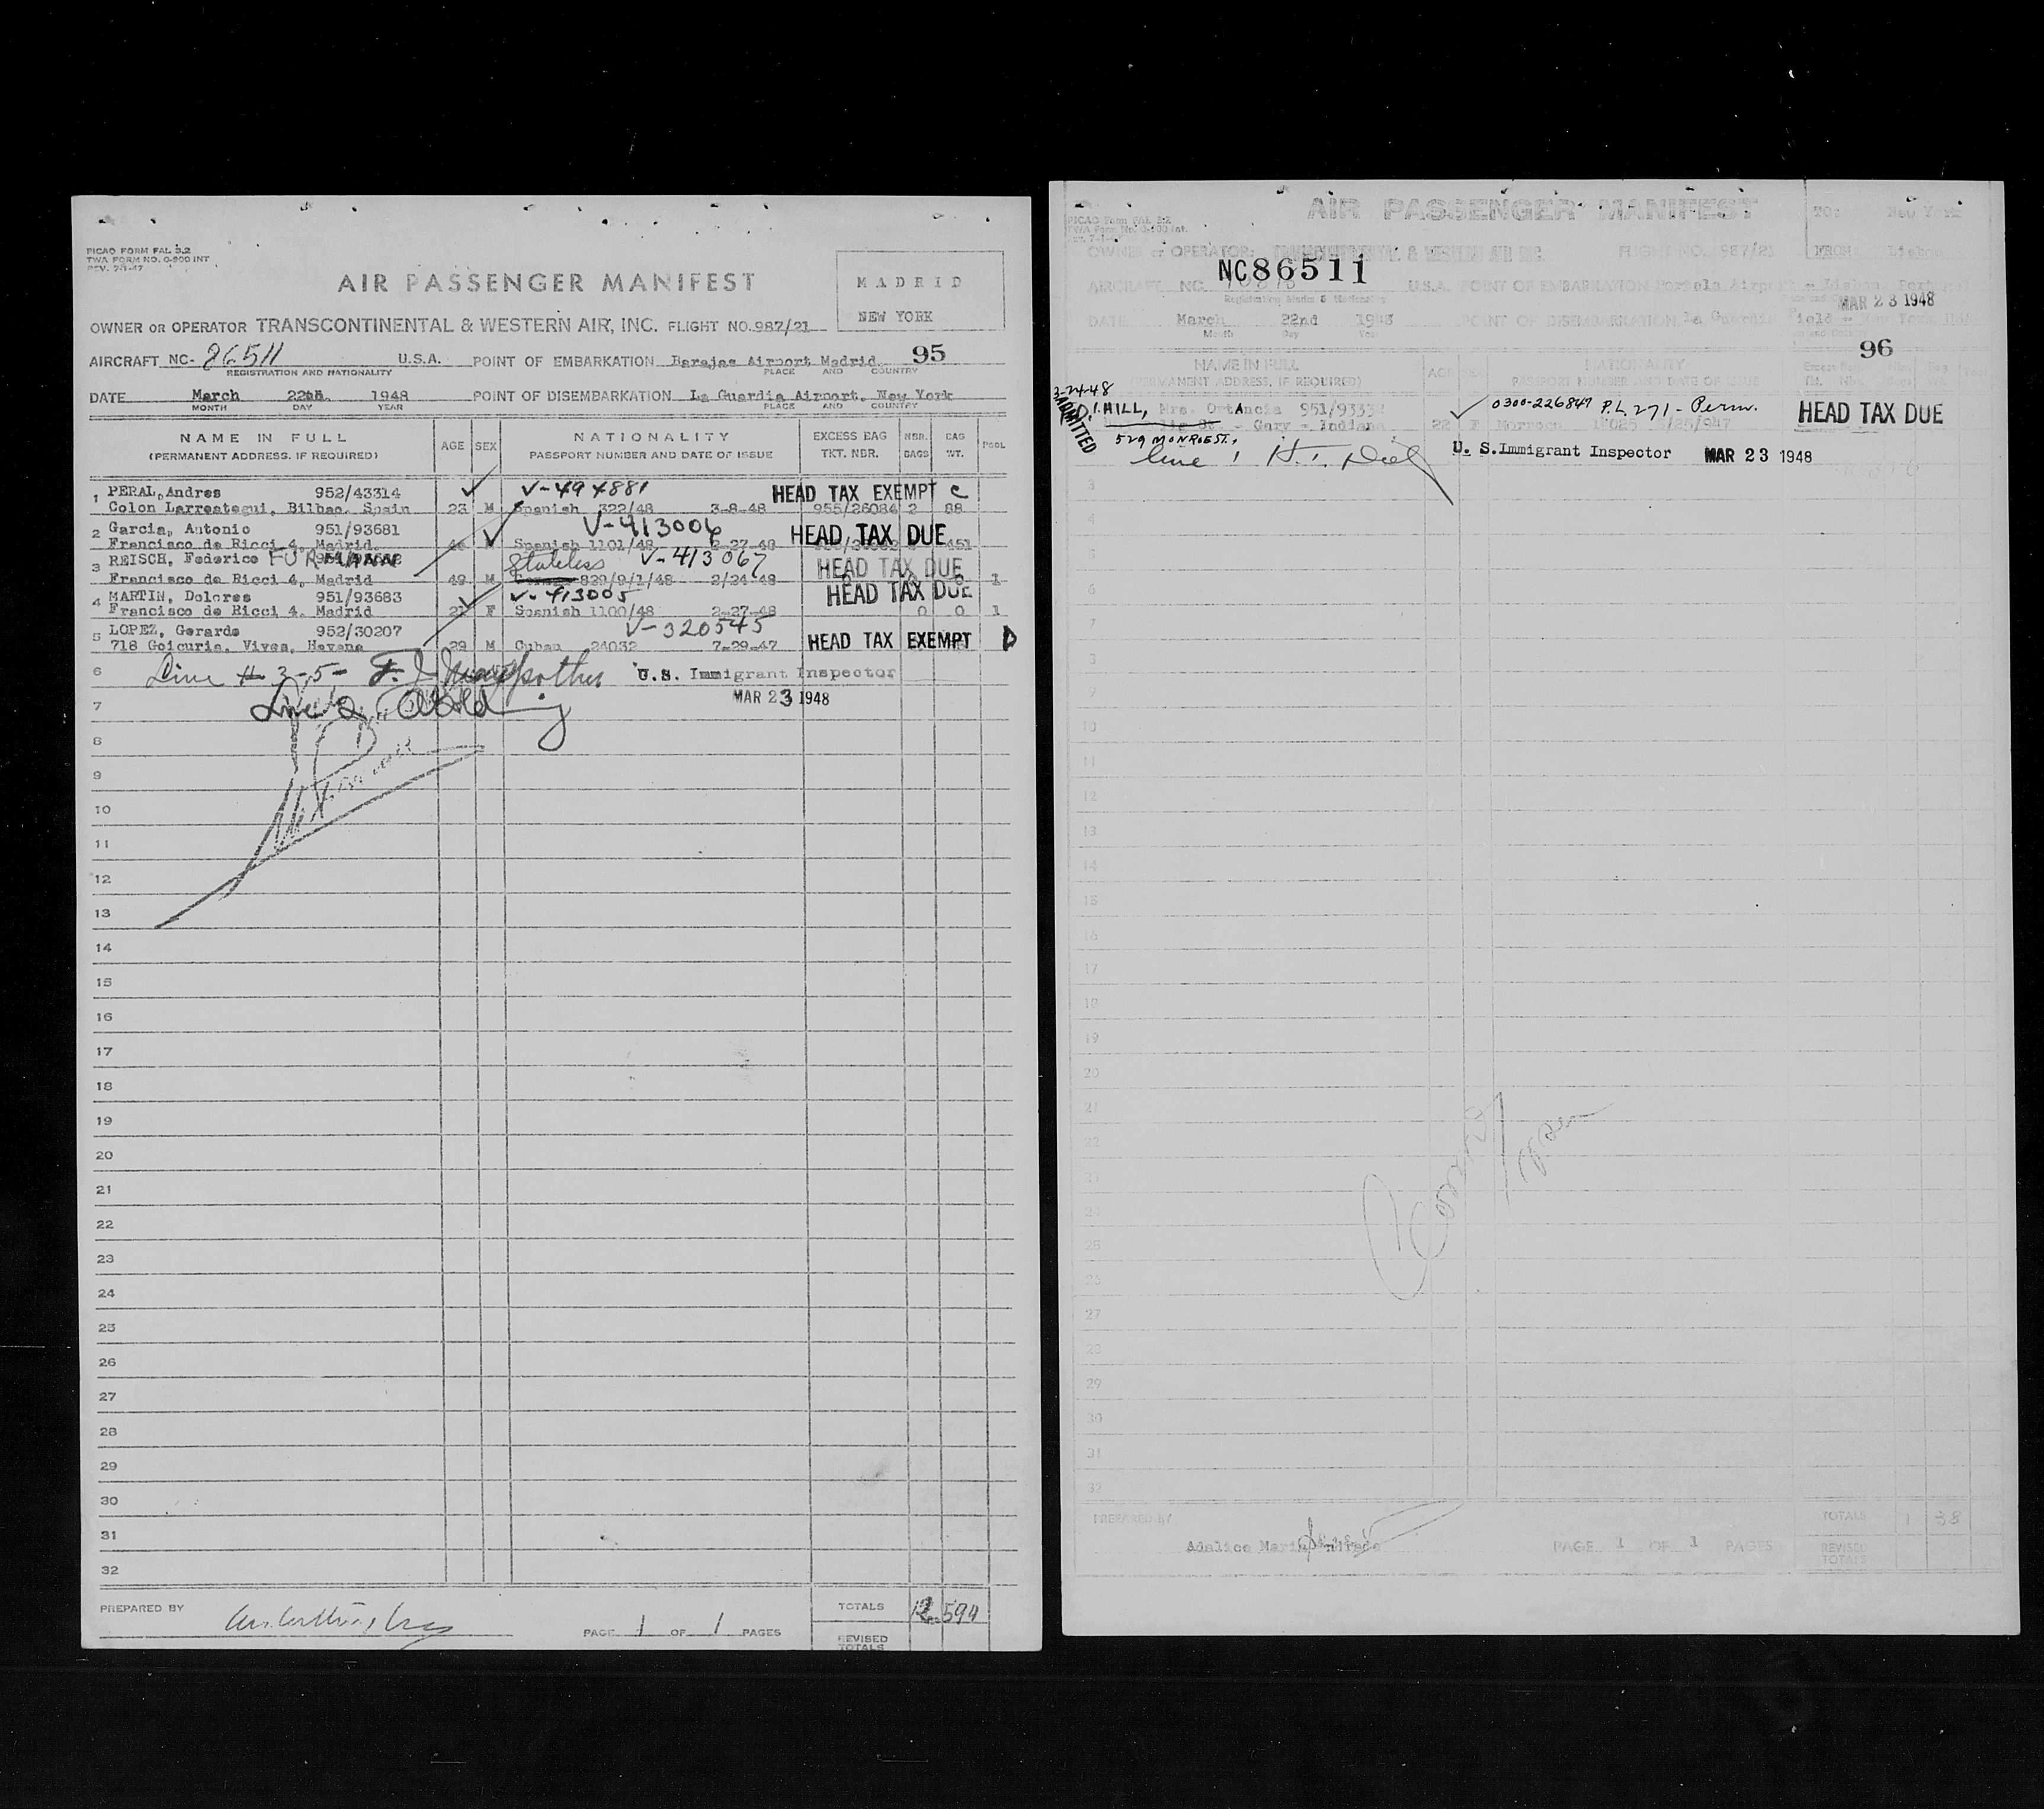 PICAO FORM FAL 3.2
TWA FORM NO. 0-900 INT
REV. 7-1-47
AIR PASSENGER MANIFEST
MADRID
NEW YORK
OWNER OR OPERATOR TRANSCONTINENTAL & WESTERN AIR, INC. FLIGHT NO. 987/21
AIRCRAFT NC- 86511 U.S.A. POINT OF EMBARKATION Barajas Airport Madrid 95
REGISTRATION AND NATIONALITY PLACE AND COUNTRY
DATE March 22 1948 POINT OF DISEMBARKATION La Guardia Airport, New York
MONTH DAY YEAR PLACE AND COUNTRY
NAME IN FULL AGE SEX NATIONALITY EXCESS BAG NBR. BAG POOL
(PERMANENT ADDRESS, IF REQUIRED) PASSPORT NUMBER AND DATE OF ISSUE TKT. NBR. BAGS WT.
1 PERAL, Andres 952/43314 V-494881 HEAD TAX EXEMPT C
Colon Larreategui, Bilbao, Spain 23 M Spanish 322/48 3-8-48 955/26084 2 88
2 Garcia, Antonio 951/93681 V-413006 HEAD TAX DUE
Francisco de Ricci 4, Madrid Spanish 1101/48 2-27-48 451
3 REISCH, Federico FURMANN Stateless V-413067 HEAD TAX DUE
Francisco de Ricci 4, Madrid 49 M 829/9/1/48 2/24/48 1
4 MARTIN, Dolores 951/93683 V-413005 HEAD TAX DUE
Francisco de Ricci 4, Madrid 27 F Spanish 1100/48 2-27-48 0 0 1
5 LOPEZ, Gerardo 952/30207 V-320545
718 Goicuria, Vivea, Havana 29 M Cuban 24032 7-29-47 HEAD TAX EXEMPT D
6 Line # 3-5- U.S. Immigrant Inspector
7 Line 2 MAR 23 1948
8
9
10
11
12
13
14
15
16
17
18
19
20
21
22
23
24
25
26
27
28
29
30
31
32
PREPARED BY PAGE 1 OF 1 PAGES TOTALS 12 594
REVISED TOTALS
AIR PASSENGER MANIFEST
PICAO Form FAL 3.2
TO: New York
OWNER or OPERATOR: TRANSCONTINENTAL & WESTERN AIR INC. FLIGHT NO. 987/21 FROM: Lisbon
NC86511
AIRCRAFT NC. U.S.A. POINT OF EMBARKATION Portela Airport - Lisbon,
Registration Marks & Nationality
MAR 23 1948
DATE March 22nd 1948 POINT OF DISEMBARKATION La Guardia Field - New York, USA
Month Day Year
96
NAME IN FULL AGE NATIONALITY
(PERMANENT ADDRESS, IF REQUIRED) PASSPORT NUMBER AND DATE OF ISSUE
3-24-48
ADMITTED
HILL, Mrs. Ortancia 951/9333 0300-226847 P.L. 271 - Perm. HEAD TAX DUE
St. - Gary - Indiana 22 F Morroco
529 MONROE ST.,
Line 1 U. S. Immigrant Inspector MAR 23 1948
3
4
5
6
7
8
7
10
11
12
13
14
15
16
17
18
19
20
21
22
23
24
25
26
27
28
29
30
31
32
PREPARED BY TOTALS 1 38
Adalice Maria Andrade PAGE 1 OF 1 PAGES REVISED TOTALS